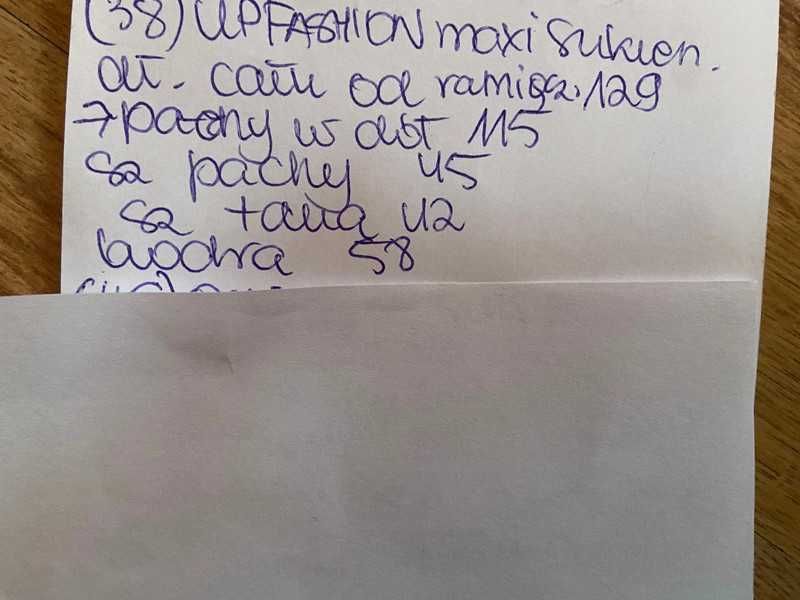 (38) UPFASHION maxi sukien.
dł. całk od ramiącz. 129
→ pachy w dół 115
sz pachy 45
sz talia 42
biodra 58